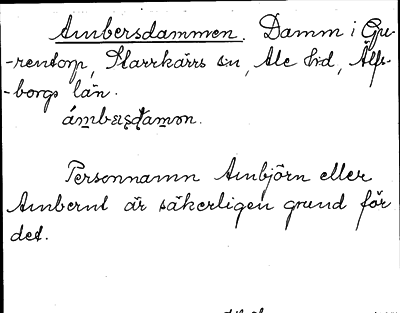 Ambersdammen. Damm i Gu-
-rentorp, Starrkärrs sn, Ale hd, Älfs-
-borgs län.
ámbæʂḍamøn.
Personnamn Ambjörn eller
Ambernt är säkerligen grund för
det.